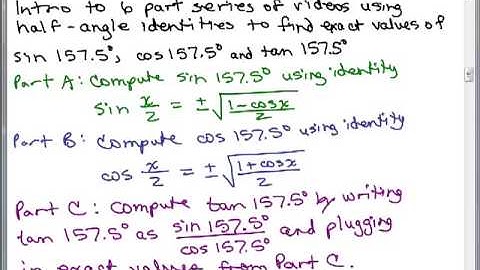 Intro to 6 part series of videos using
half-angle identities to find exact values of
sin 157.5°, cos 157.5° and tan 157.5°
Part A: Compute sin 157.5° using identity
sin x/2 = ±√((1-cosx)/2)
Part B: Compute cos 157.5° using identity
cos x/2 = ±√((1+cosx)/2)
Part C: Compute tan 157.5° by writing
tan 157.5° as sin 157.5°/cos 157.5° and plugging
in exact values from Part C.